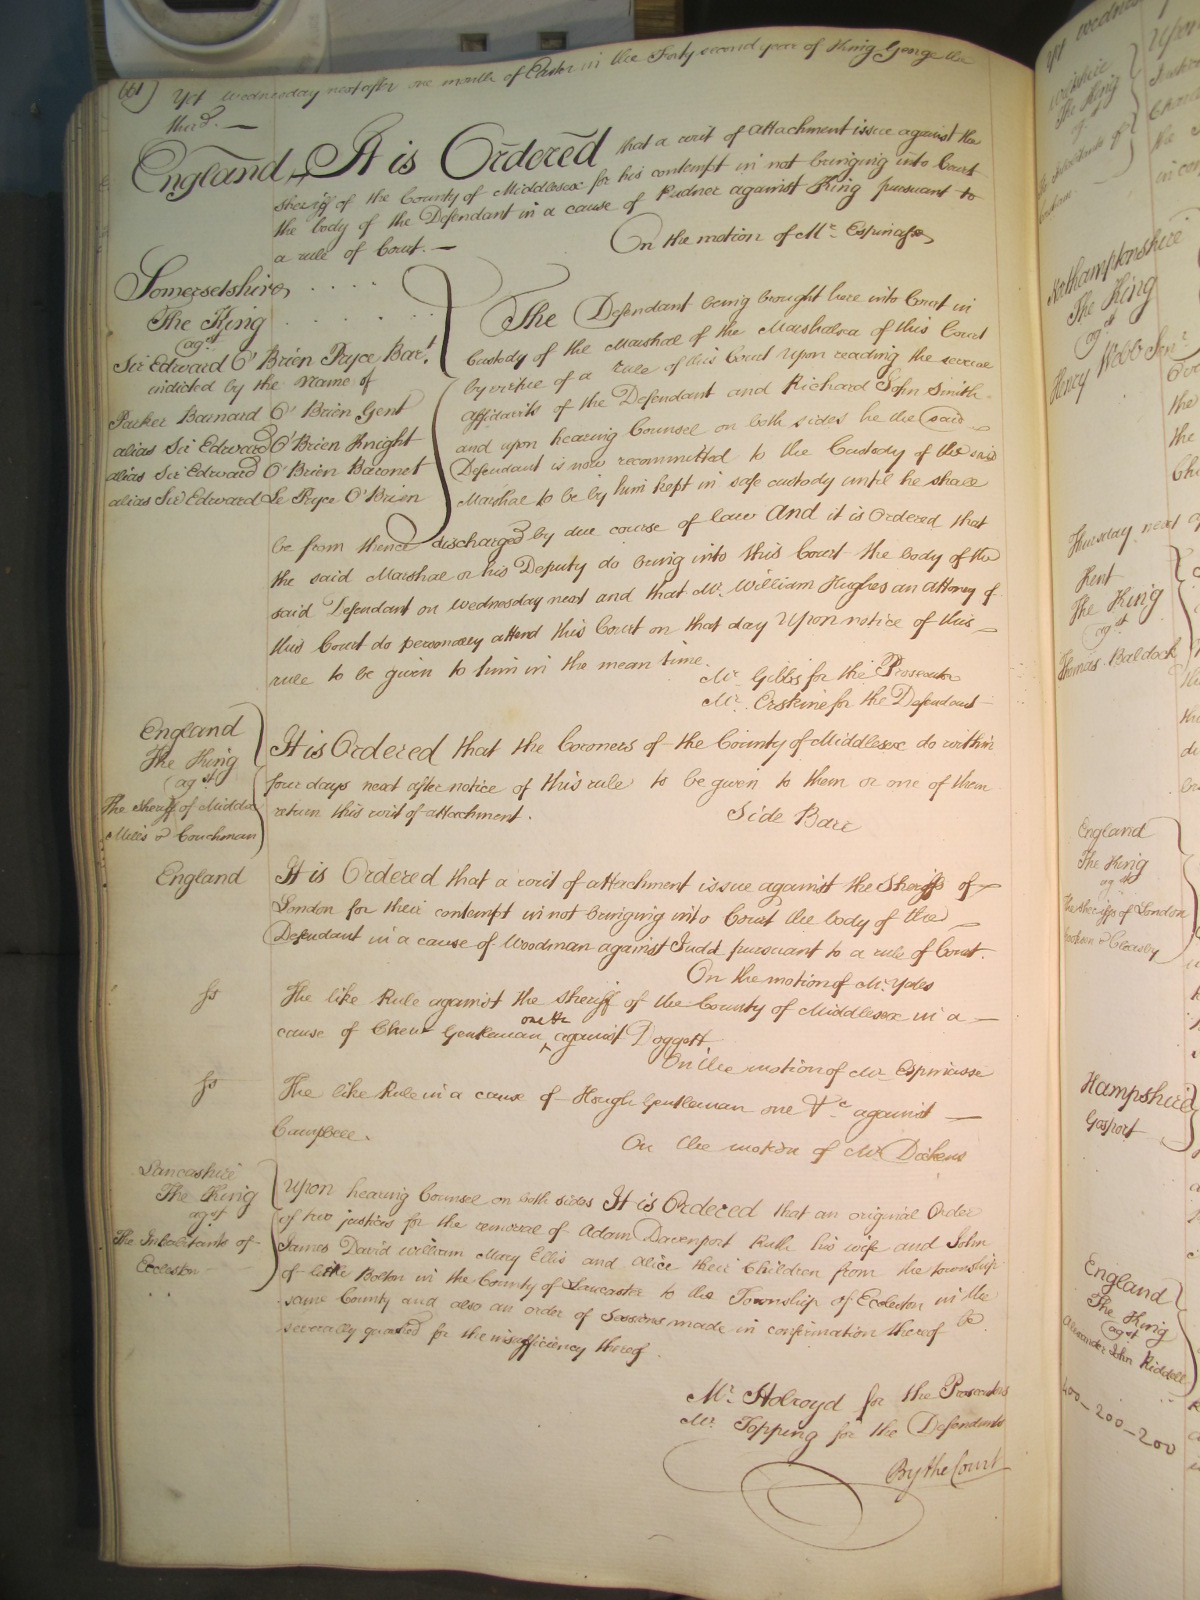 Yet Wednesday next after one month of Easter in the Forty second year of King George the
third. —
England, It is Ordered that a writ of Attachment issue against the
sheriff of the County of Middlesex for his contempt in not bringing into Court
the body of the Defendant in a cause of Pudner against King pursuant to
a rule of Court. — On the motion of Mr. Espinasse
Somersetshire
The King
agst
Sir Edward O'Brien Pryce Bart.
indicted by the Name of
Parker Barnard O'Brien Gent
alias Sir Edward O'Brien Knight
alias Sir Edward O'Brien Baronet
alias Sir Edward Le Pryce O'Brien
The Defendant being brought here into Court in
Custody of the Marshal of the Marshalsea of this Court
by virtue of a rule of this Court upon reading the several
Affidavits of the Defendant and Richard John Smith
and upon hearing Counsel on both sides he the said
Defendant is now recommitted to the Custody of the said
Marshal to be by him kept in safe custody until he shall
be from thence discharged by due course of law And it is Ordered that
the said Marshal or his Deputy do bring into this Court the body of the
said Defendant on Wednesday next and that Mr. William Hughes an Attorney of
this Court do personally attend this Court on that day Upon notice of this
rule to be given to him in the mean time.
Mr. Gibbs for the Prosecutor
Mr. Erskine for the Defendant
England
The King
agst
The Sheriff of Middx
Mills v Couchman
It is Ordered that the Coroners of the County of Middlesex do within
four days next after notice of this rule to be given to them or one of them
return this writ of attachment. Side Barr
England It is Ordered that a writ of attachment issue against the Sheriffs of
London for their contempt in not bringing into Court the body of the
Defendant in a cause of Woodman against Judd pursuant to a rule of Court.
On the motion of Mr. Yates
ss The like Rule against the Sheriff of the County of Middlesex in a
cause of Chew Gentleman one &c against Doggett.
On the motion of Mr. Espinasse
ss The like Rule in a cause of Hough Gentleman one &c against
Campbell. On the motion of Mr. Dickens
Lancashire
The King
agst
The Inhabitants of
Eccleston
Upon hearing Counsel on both sides It is Ordered that an original Order
of two justices for the removal of Adam Davenport Ruth his wife and John
James David William Mary Ellis and Alice their Children from the township
of little Bolton in the County of Lancaster to the Township of Eccleston in the
same County and also an order of Sessions made in confirmation thereof be
severally quashed for the insufficiency thereof.
Mr. Holroyd for the Prosecutors
Mr. Topping for the Defendants
By the Court
The King
Northamptonshire
The King
agst
Henry Webb Senr
Thursday next
Kent
The King
agst
Thomas Baldock
England
The King
agst
The Sheriffs of London
Hampshire
Gosport
England
The King
agst
Alexander John Riddell
400-200-200